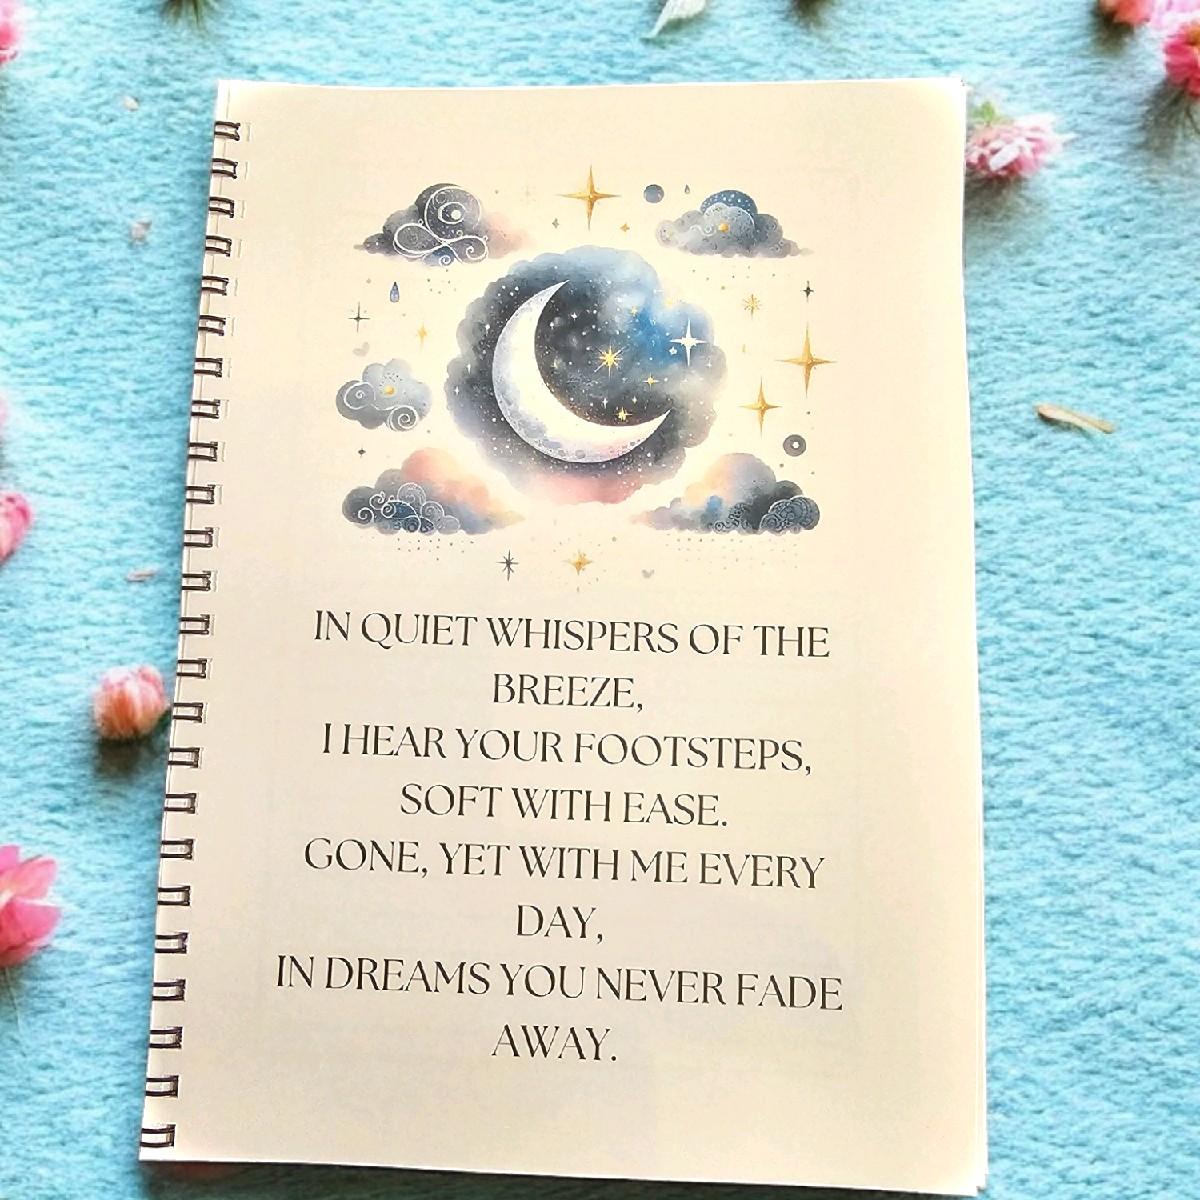 IN QUIET WHISPERS OF THE
BREEZE,
I HEAR YOUR FOOTSTEPS,
SOFT WITH EASE.
GONE, YET WITH ME EVERY
DAY,
IN DREAMS YOU NEVER FADE
AWAY.